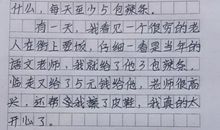 什么，每天至少5包辣条。
有一天，我看见一个很穷的老
人在街上要饭，仔细一看是当年的
语文老师，我就给了他3包辣条，
临走又给了5元钱给他，老师很高
兴，还帮我擦了皮鞋，我真的太
开心了。